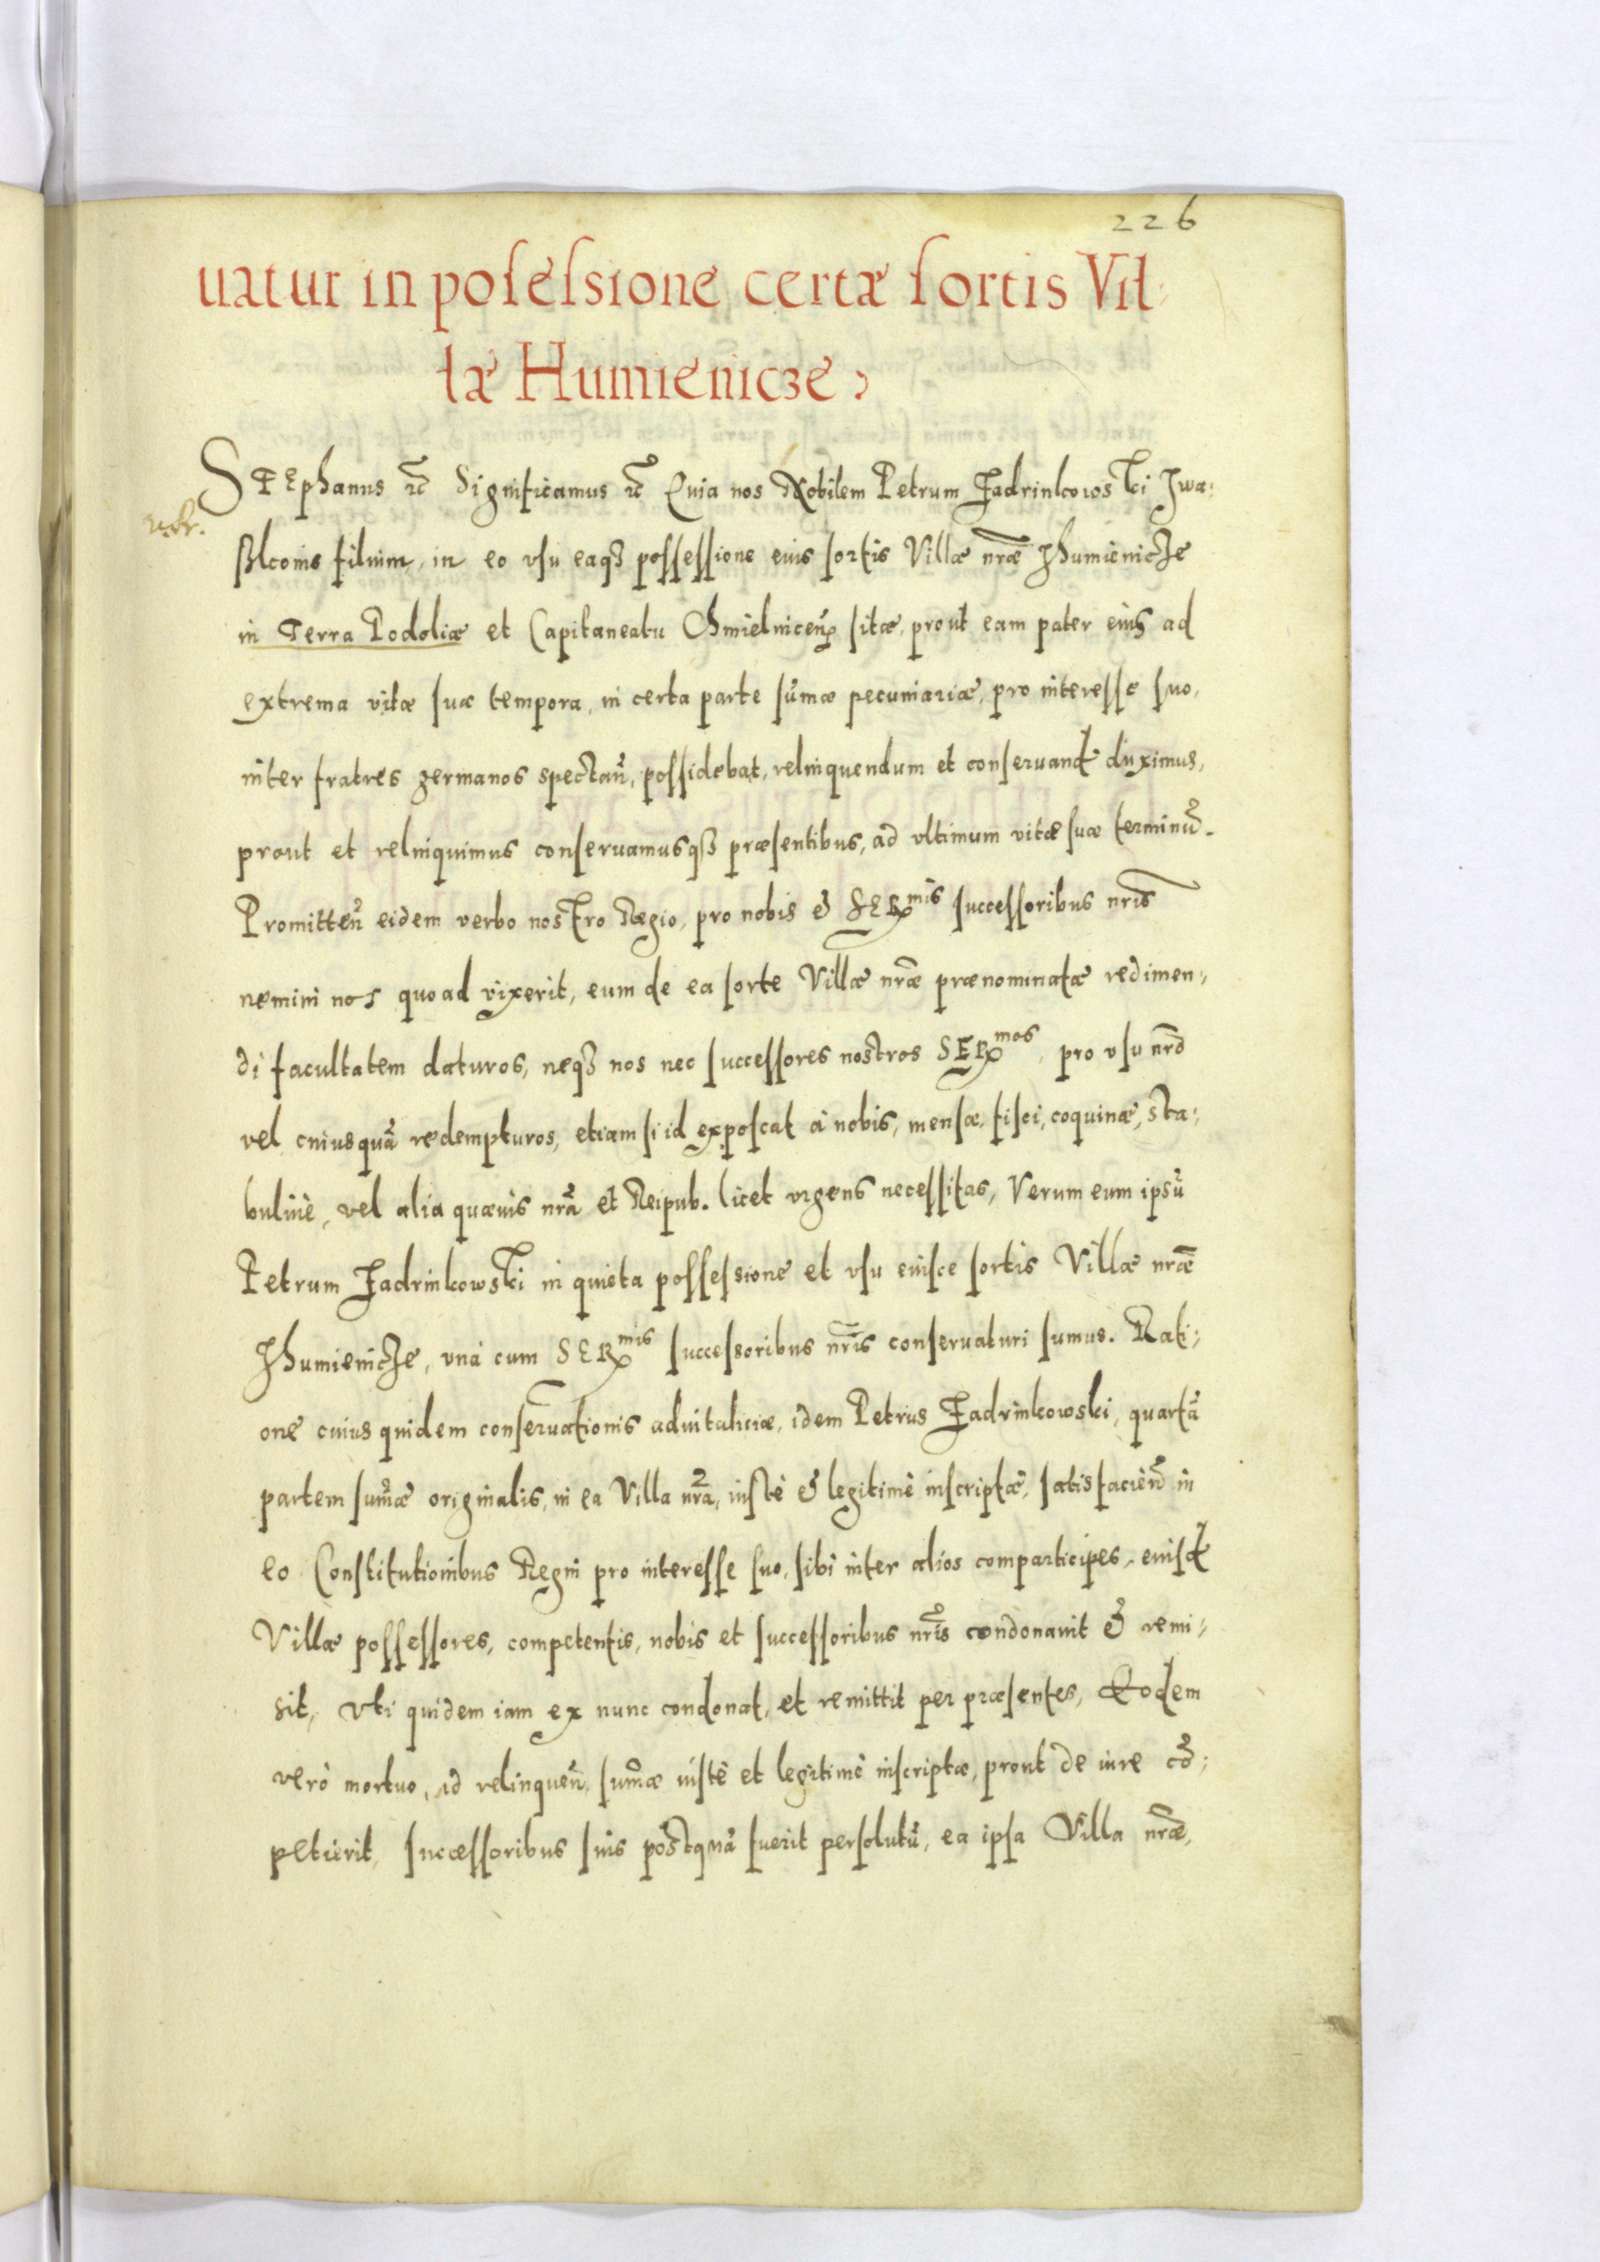 226
uatur in possessione certæ sortis Vil:
læ Humienicze
Stephanus etc̃ Significamus etc̃ Quia nos Nobilem Petrum Jadrinkowski Iwa:
sskonis filium, in eo vsu eaqꝫ possessione eius sortis Villæ nr̃æ Humienicze
in Terra Podoliæ et Capitaneatu Chmielnicen̄ sitæ, prout eam pater eius ad
extrema vitæ suæ tempora, in certa parte sum̃æ pecuniariæ, pro interesse suo,
inter fratres germanos spectan̄, possidebat, relinquendum et conseruand duximus,
prout et relinquimus conseruamusqꝫ præsentibus, ad vltimum vitæ suæ terminū.
Promitten̄ eidem verbo nostro Regio, pro nobis & SERmis successoribus nr̃is
nemini nos quoad vixerit, eum de ea sorte Villæ nr̃æ prænominatæ redimen:
di facultatem daturos, neqꝫ nos nec successores nostros SERmos, pro vsu nr̃o
vel cuiusquā redempturos, etiamsi id exposcat à nobis, mensæ, fisci, coquinæ, sta:
buliuè, vel alia quæuis nr̃a et Reipub. licet vrgens necessitas, Verum eum ipsū
Petrum Jadrinkowski in quieta possessione et vsu eiusce sortis Villæ nr̃æ
Humienicze, vnà cum SERmis successoribus nr̃is conseruaturi sumus. Rati:
one cuius quidem conseruationis aduitaliciæ, idem Petrus Jadrinkowski, quartā
partem sum̃æ originalis, in ea Villa nr̃a, iustè & legitimè inscriptæ, satisfacien̄ in
eo Constitutionibus Regni pro interesse suo, sibi inter alios comparticipes, eiusd
Villæ possessores, competentis, nobis et successoribus nr̃is condonauit & remi:
sit, Vti quidem iam ex nunc condonat, et remittit per præsentes, Eodem
verò mortuo, id relinquen̄ sum̃æ iustè et legitimè inscriptæ, prout de iure cō:
petierit, successoribus suis postquā fuerit persolutū, ea ipsa Villa nr̃æ,